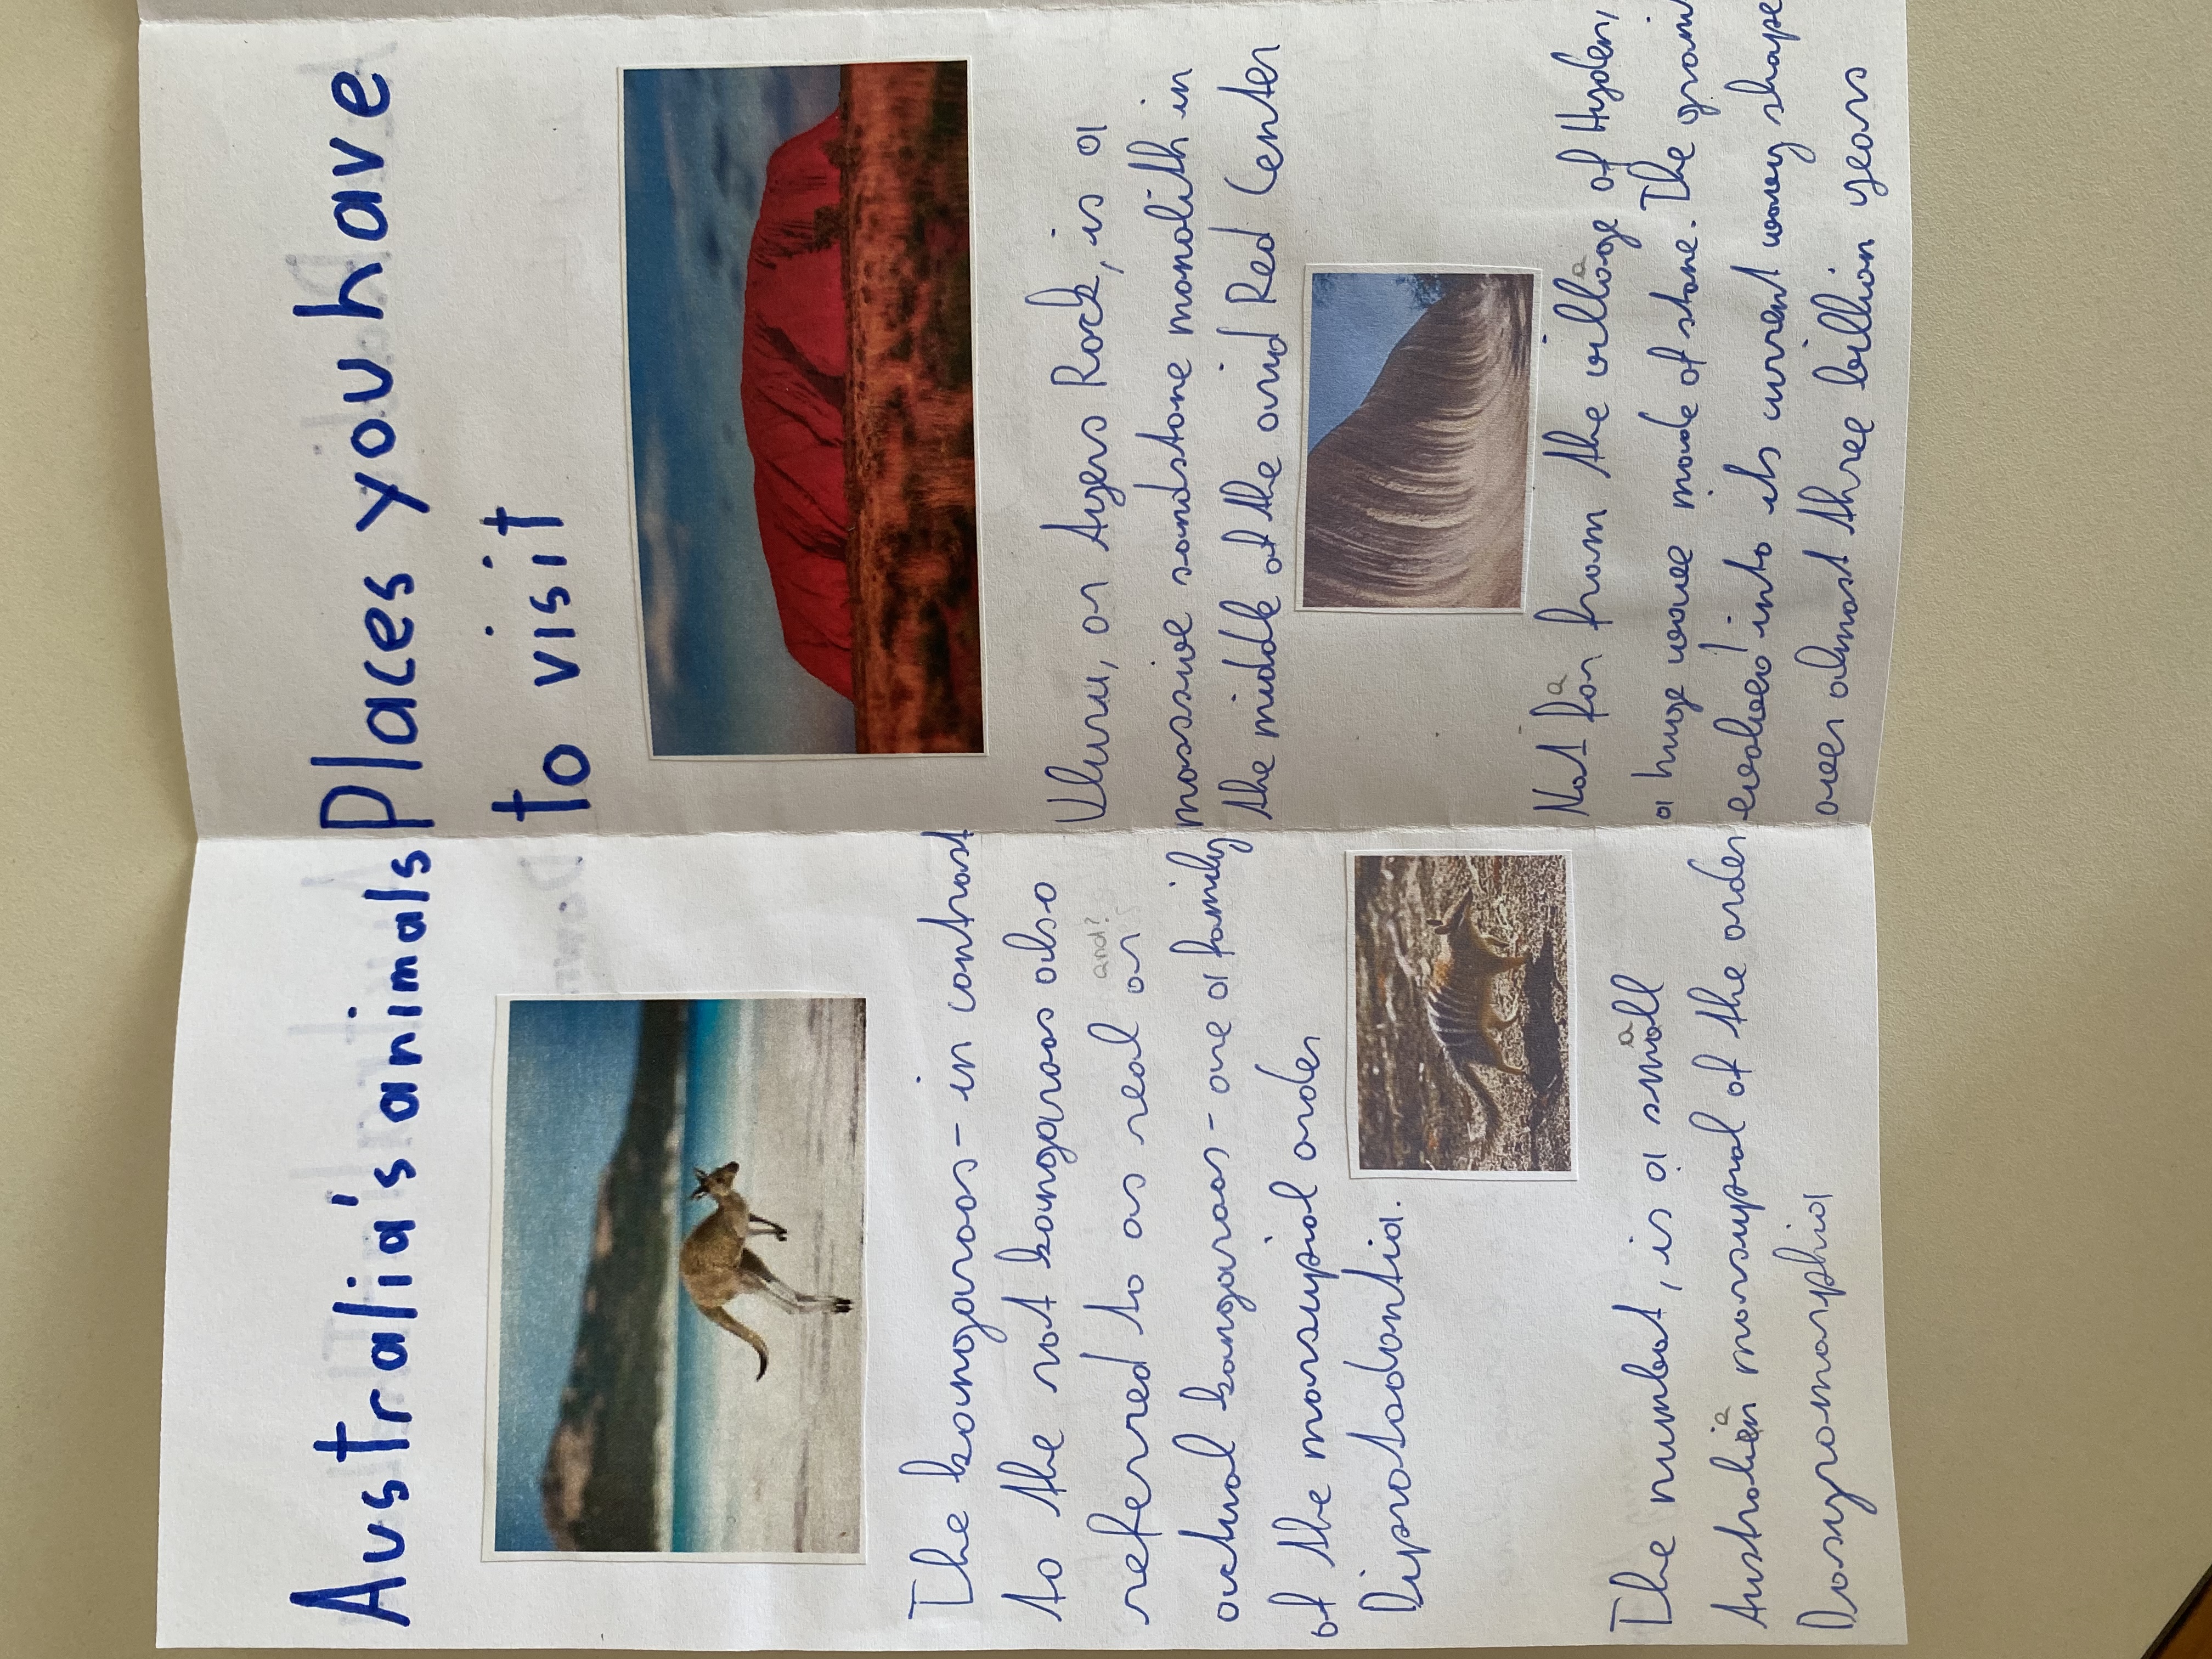 Australia's animals
The kangaroos - in contrast
to the rat kangaroos also
and?
referred to as real or
actual kangaroos - are a family
of the marsupial order
Diprotodontia.
The numbat, is a small
Australian marsupial of the order
Dasyromorphia
Places you have
to visit
Uluru, or Ayers Rock, is a
massive sandstone monolith in
the middle of the arid Red Center
Not far from the village of Hyden,
a huge wave made of stone. The
evolved into its current wavy shape
over almost three billion years